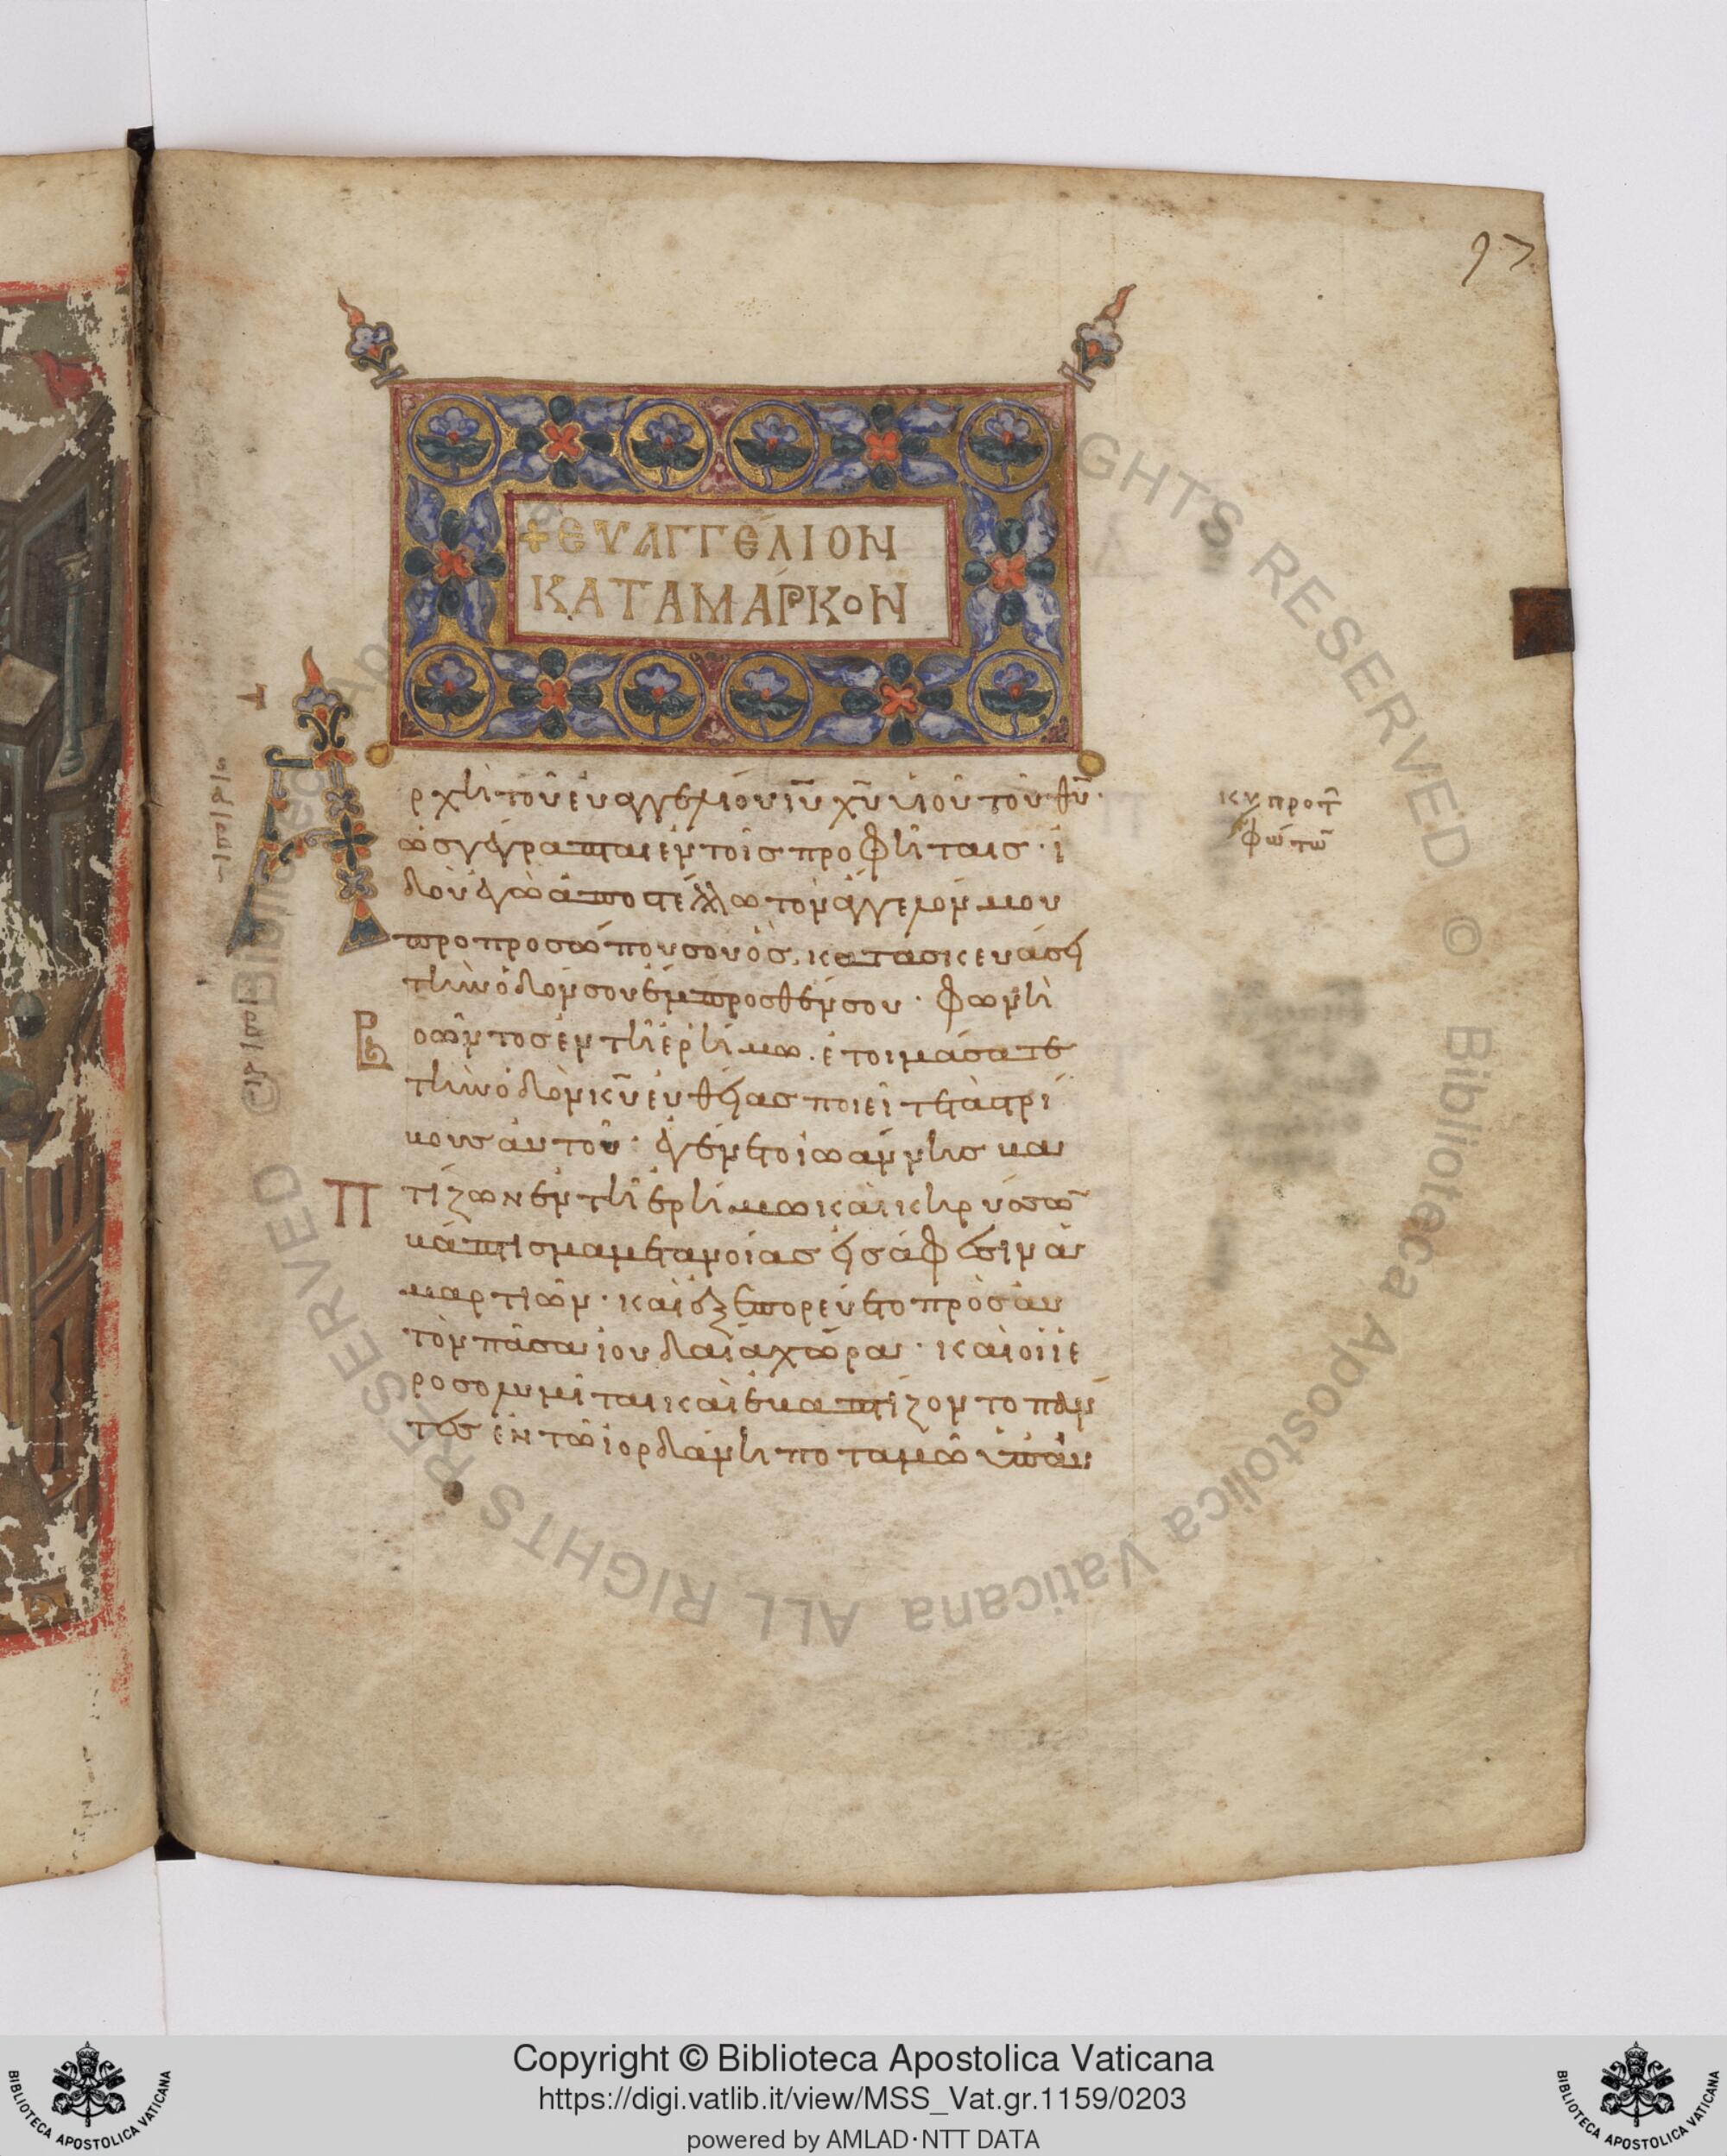 97
+ ΕΥΑΓΓΈΛΙΟΝ
ΚΑΤΑ ΜΆΡΚΟΝ
Ἀρχὴ τοῦ εὐαγγελίου ιῦ χῦ υἱοῦ τοῦ θῦ·
ὡς γέγραπται ἐν τοῖς προφήταις· ἰ
δοὺ ἐγὼ ἀποστέλλω τὸν ἄγγελόν μου
προ προσώπου σου ὃς κατασκευάσει
τὴν ὁδόν σου ἔμπροσθέν σου· φωνὴ
Βοῶντος ἐν τῆ ἐρήμω. ἑτοιμάσατε
τὴν ὁδὸν κῦ εὐθείας ποιεῖτε τὰς τρί
βους αὐτοῦ· ἐγένετο ἰωάννης βα
πτίζων ἐν τῆ ἐρήμω καὶ κηρύσσω
βάπτισμα μετανοίας εἰς ἄφεσιν ἁ
μαρτιῶν· καὶ ἐξεπορεύετο πρὸς αυ
τὸν πᾶσα ἰουδαία χώρα· καὶ οἱ ἱε
ροσολυμῖται καὶ ἐβαπτίζοντο πάν
τες ἐν τῶ ἰορδάνη ποταμῶ ὑπ' αυ
κυ προ τ
φώτω
Copyright © Biblioteca Apostolica Vaticana
https://digi.vatlib.it/view/MSS_Vat.gr.1159/0203
powered by AMLAD·NTT DATA
BIBLIOTECA APOSTOLICA VATICANA
BIBLIOTECA APOSTOLICA VATICANA
© Biblioteca Apostolica Vaticana ALL RIGHTS RESERVED